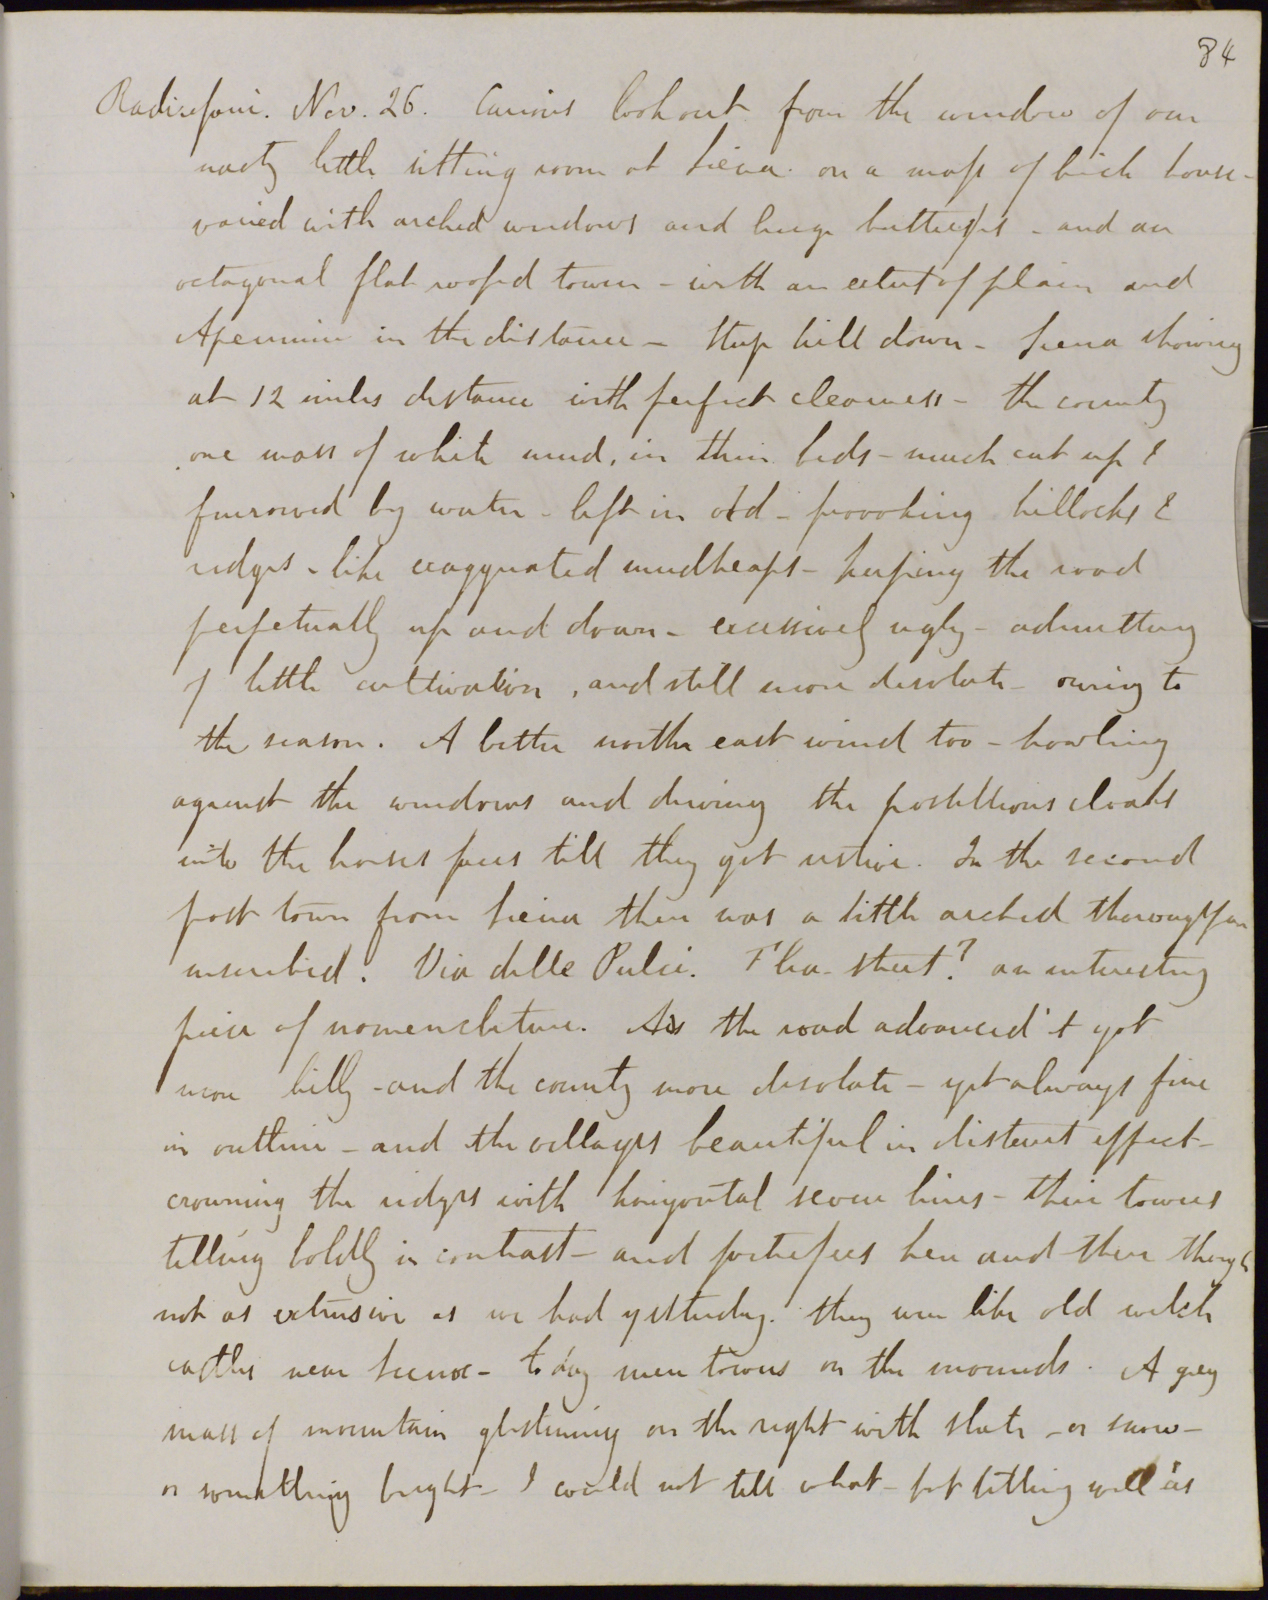 84
Radicofani. Nov. 26. Curious look out from the window of our
nasty little sitting room at Siena. on a mass of brick house -
varied with arched windows and huge buttresses - and an
octagonal flat roofed tower - with an extent of plain and
Apennine in the distance - Steep hill down - Siena showing
at 12 miles distance with perfect clearness - the country
one mass of white mud, in thin beds - much cut up &
furrowed by water - left in odd - provoking hillocks &
ridges - like exaggerated mudheaps - keeping the road
perpetually up and down - excessively ugly - admitting
of little cultivation, and still more desolate - owing to
the season. A bitter north east wind too - howling
against the windows and driving the postillions cloaks
into the horses faces till they got restive. In the second
post town from Siena there was a little arched thoroughfare
inscribed. Via delle Pulci. Flea - street? an interesting
piece of nomenclature. As the road advanced it got
more hilly - and the country more desolate - yet always fine
in outline - and the villages beautiful in distant effect -
crowning the ridges with horizontal severe lines - their towers
telling boldly in contrast - and fortresses here and there though
not as extensive as we had yesterday. they were like old welch
castles near Siena - to day mere towers on the mounds. A grey
mass of mountain glistening on the right with slate - or snow -
or something bright - I could not tell what - but telling well as